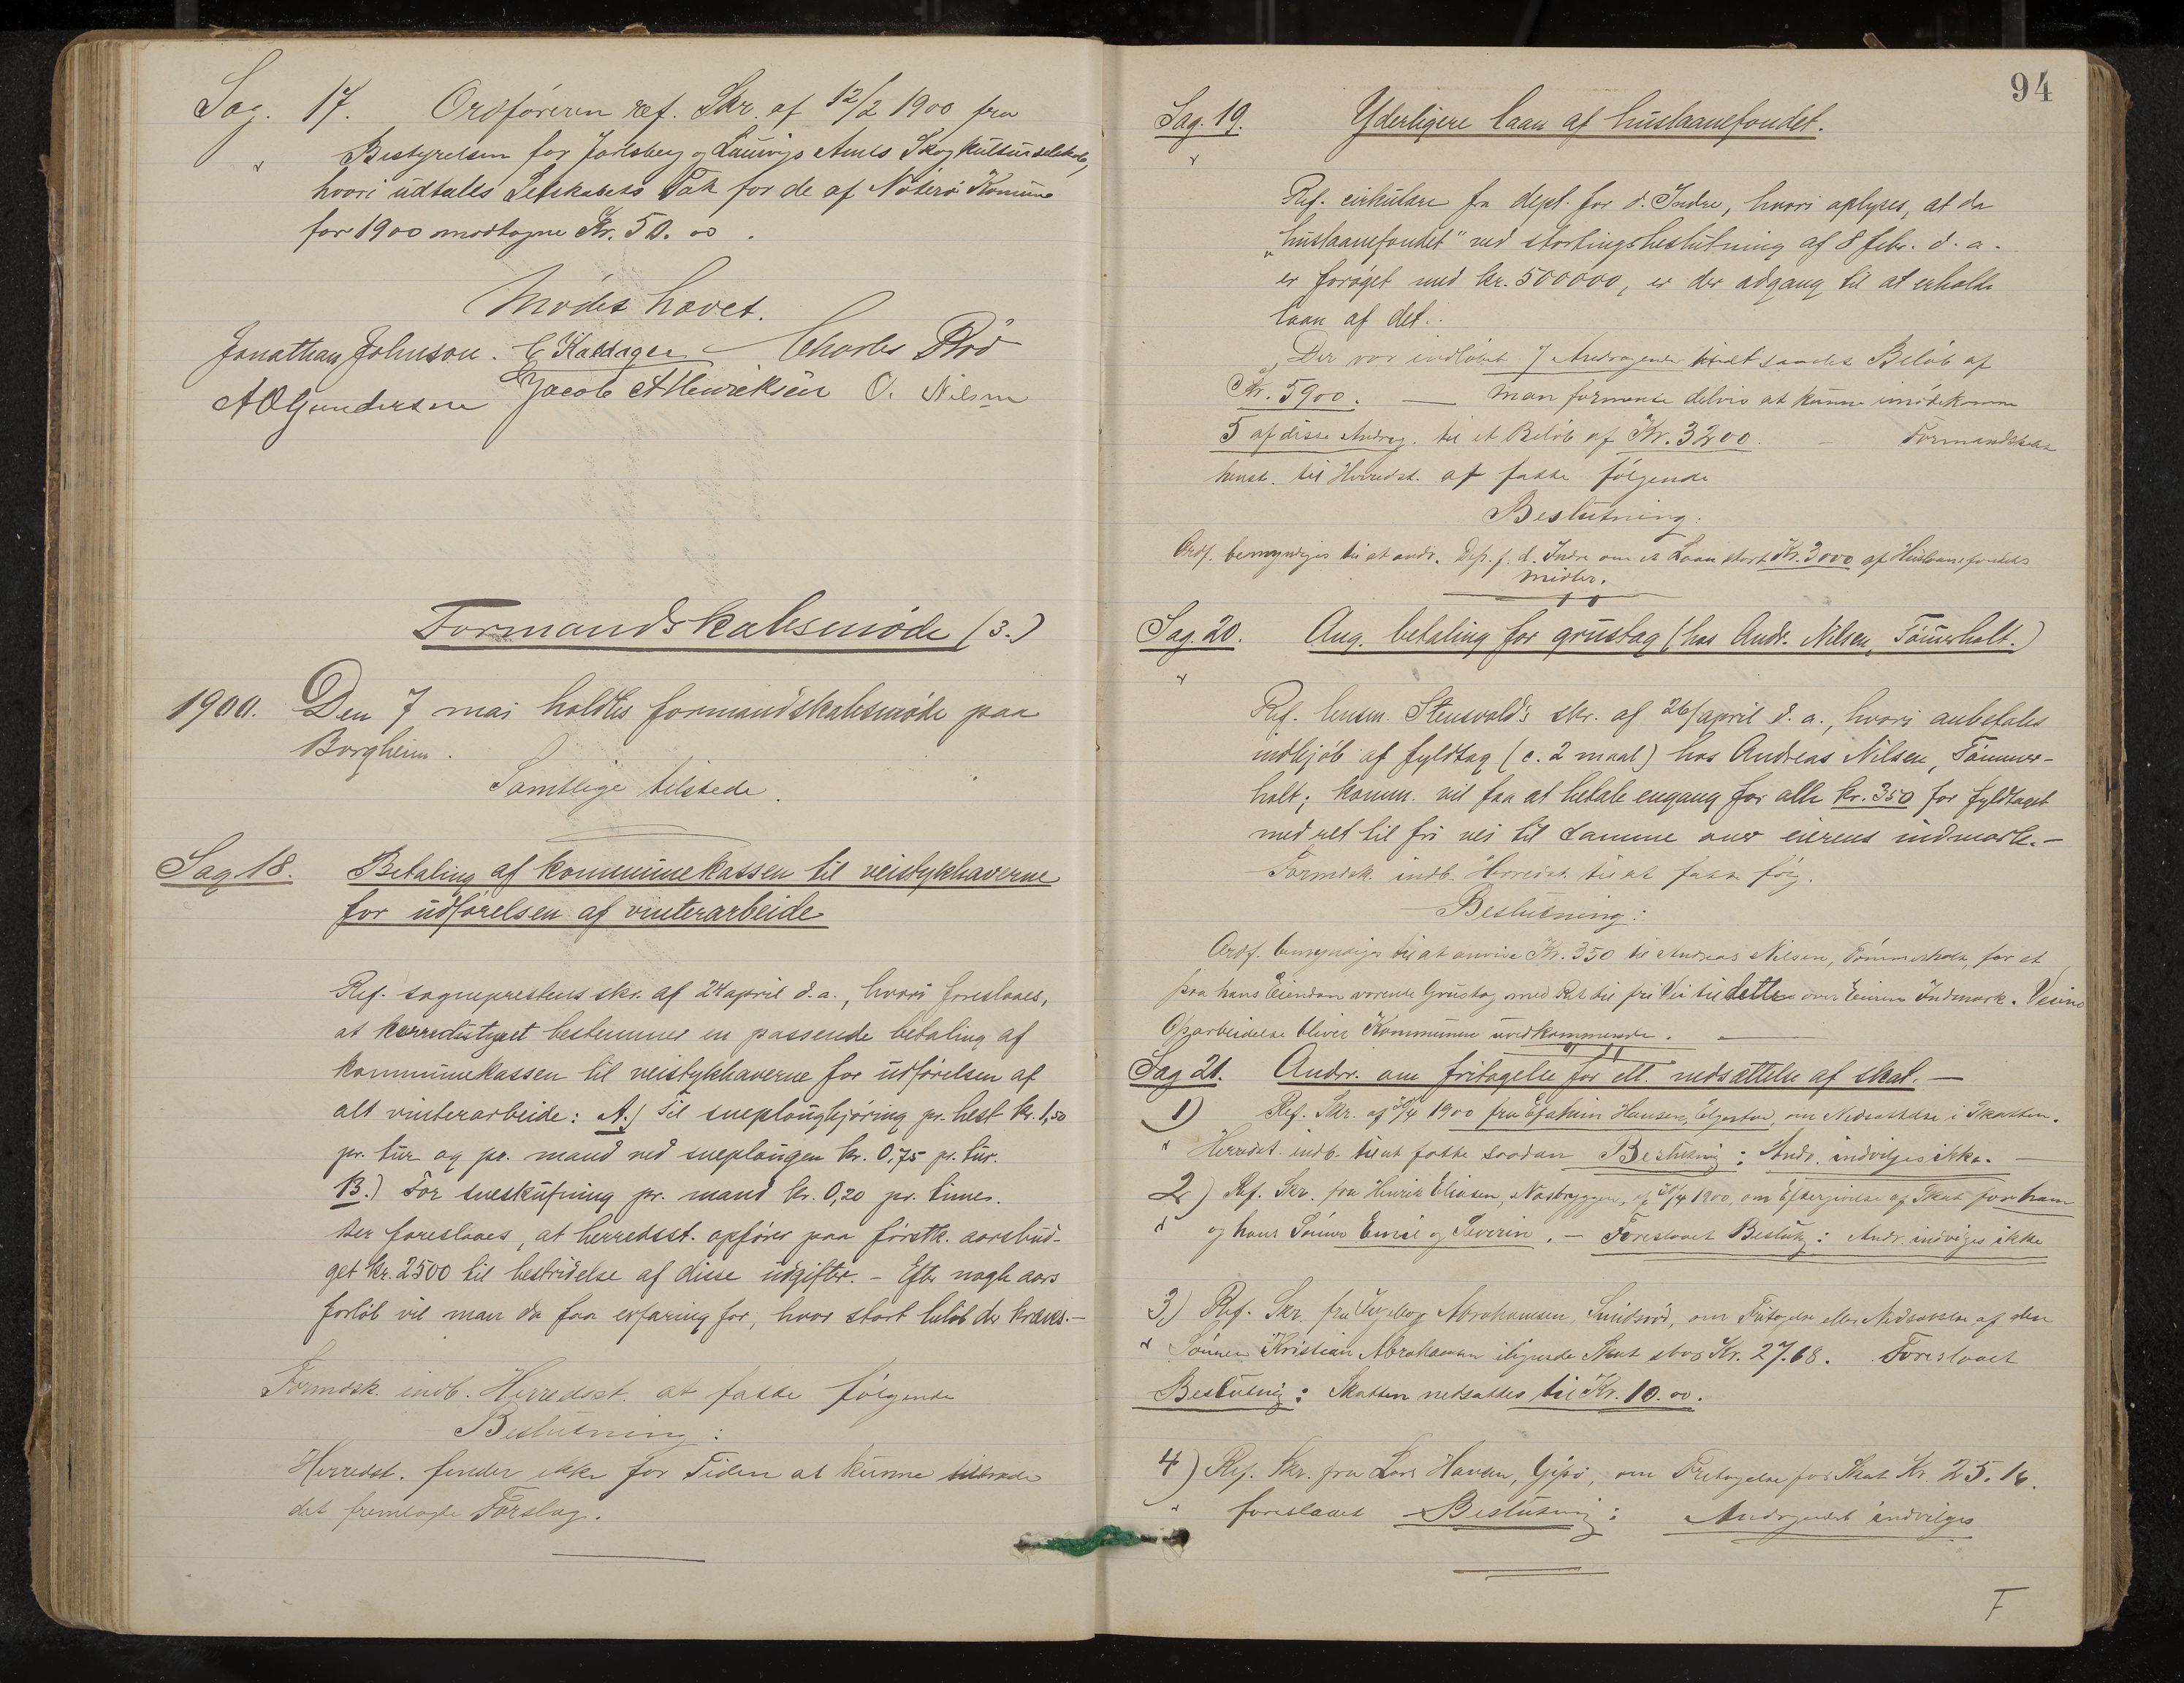 Sag. 17. Ordføreren ref. Skr. af 12/2 1900 fra
Bestyrelsen for Jarlsberg og Laurvigs Amts Skogkulturselskab,
hvori udtales Selskabets Tak for de af Nøterø Komune
for 1900 modtagne Kr. 50.00.
Mødet hævet.
Jonathan Johnson. C Kaldager Charles Rød
A O Gundersen Jacob A Henriksen O. Nilsen
Formandskabsmøde (3.)
1900. Den 7 mai holdtes formandskabsmøde paa
Borgheim.
Samtlige tilstede.
Sag 18. Betaling af kommunekassen til veistykhaverne
for udførelsen af vinterarbeide
Ref. sogneprestens skr. af 24 april d.a., hvori foreslaaes,
at herredsstyret bestemmer en passende betaling af
kommunekassen til veistykhaverne for udførelsen af
alt vinterarbeide: A.) Til sneplougkjøring pr. hest kr. 1,50
pr. tur og pr. mand ved sneplougen kr. 0,75 pr. tur.
B.) For sneskufning pr. mand kr. 0,20 pr. time.
Der foreslaaes, at herredsst. opfører paa førstk. aarsbud-
get kr. 2500 til bestridelse af disse udgifter. - Efter nogle aars
forløb vil man da faa erfaring for, hvor stort beløb der kræves. -
Formdsk. indb. Herredsst. at fatte følgende
Beslutning:
Herredst. finder ikke for Tiden at kunne tiltræde
det fremlagte Forslag.
94
Sag. 19. Yderligere laan af huslaanefondet.
Ref. cirkulære fra dept. for d. Indre, hvori oplyses, at da
"huslaanefondet" ved stortingsbeslutning af 8 febr. d.a.
er forøget med kr. 500000, er der adgang til at erholde
laan af det.
Der var indløbet 7 Andragender til et samlet Beløb af
Kr. 5900. — Man formente delvis at kunne imødekomme
5 af disse Andrag. til et Beløb af Kr. 3200. - Formandskab
henst. til Herredst. at fatte følgende
Beslutning:
Ordf. bemyndiges til at andr. Dep. f. d. Indre om et Laan stort Kr. 3000 af Huslaanefondets
Midler.
Sag 20. Ang. betaling for grustag (hos Andr. Nilsen, Tømmerholt.)
Ref. lensm. Stensvold's skr. af 26/april d.a., hvori anbefales
indkjøb af fyldtag (c. 2 maal) hos Andreas Nilsen, Tømmer-
holt; komm. vil faa at betale engang for alle kr. 350 for fyldtaget
med ret til fri vei til samme over eierens indmark. -
Formdsk. indb. Herredst. til at fatte følg.
Beslutning:
Ordf. bemyndiges til at anvise Kr. 350 til Andreas Nilsen, Tømmerholt, for et
paa hans Eiendom værende Grustag med Ret til fri Vei til dette over Eierens Indmark. Veiens
Oparbeidelse bliver Kommunen uvedkommende.
Sag 21. Andr. om fritagelse for ell. nedsættelse af skat. —
1) Ref. Skr. af 30/4 1900 fra Efraim Hansen, Elgestad, om Nedsættelse i Skatten.
Herredst. indb. til at fatte saadan Beslutning: Andr. indvilges ikke. —
2) Ref. Skr. fra Henrik Eliasen, Næsbryggen, af 30/4 1900, om Eftergivelse af Skat for ham
og hans Sønner Emil og Severin. - Foreslaaet Beslutg: Andr. indvilges ikke
3) Ref. Skr. fra Ingeborg Abrahamsen Smidsrød, om Fritagelse eller Nedsættelse af den
Sønnen Kristian Abrahamsen ilignede Skat stor Kr. 27.68. Foreslaaet
Beslutnig: Skatten nedsættes til Kr. 10.00.
4) Ref. Skr. fra Lars Hansen, Gipø, om Fritagelse for Skat Kr. 25.16.
foreslaaet Beslutnig: Andragendet indvilges
F